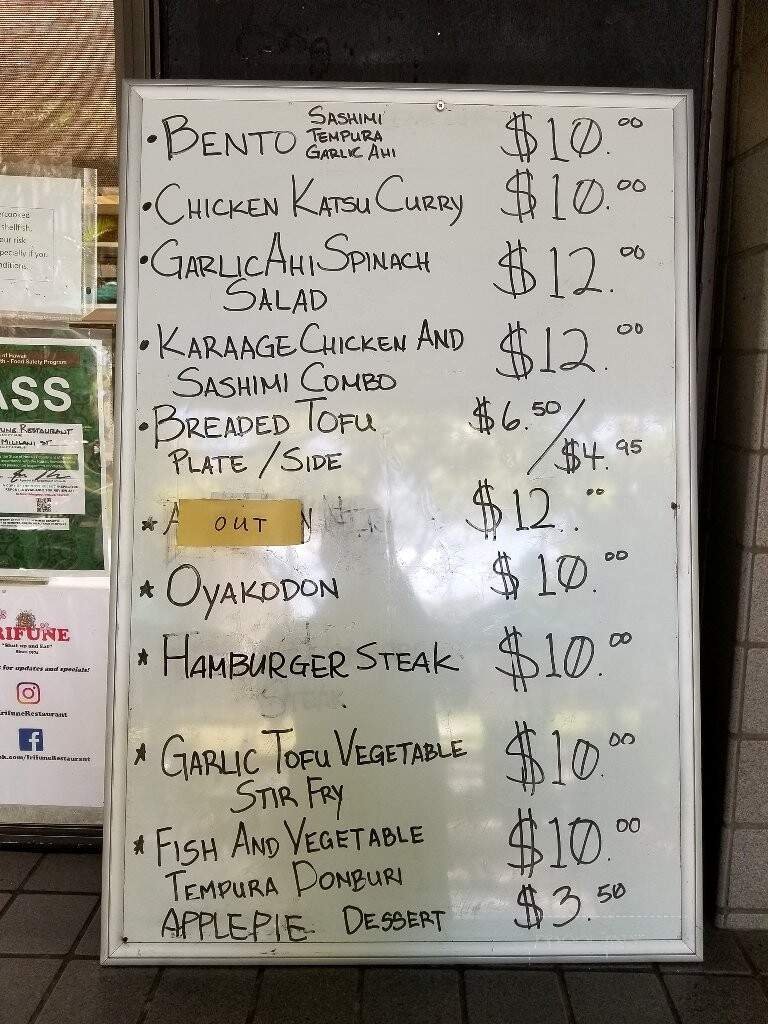 • BENTO SASHIMI $10.00
TEMPURA
GARLIC AHI
• CHICKEN KATSU CURRY $10.00
• GARLIC AHI SPINACH $12.00
SALAD
• KARAAGE CHICKEN AND $12.00
SASHIMI COMBO
• BREADED TOFU $6.50/
PLATE / SIDE $4.95
* A OUT N $12.00
* OYAKODON $10.00
* HAMBURGER STEAK $10.00
STEAK
* GARLIC TOFU VEGETABLE $10.00
STIR FRY
* FISH AND VEGETABLE $10.00
TEMPURA DONBURI
APPLE PIE DESSERT $3.50
shellfish.
our risk
pecially if you
nditions.
of Hawaii
th - Food Safety Program
ASS
UNE RESTAURANT
MILILANI ST
RIFUNE
"Shut up and Eat"
for updates and specials!
IrifuneRestaurant
ok.com/IrifuneRestaurant